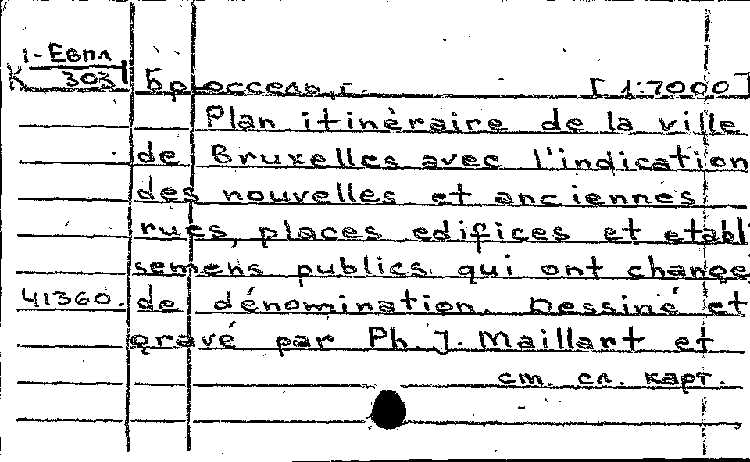 1-Евпл
К 303
Брюссель, г. [1:7000]
Plan itinèraire de la ville
de Bruxelles avec l'indication
des nouvelles et anciennes
rues, places edifices et etabli
semens publics qui ont change
41360. de dénomination. Dessiné et
gravé par Ph. J. Maillart et
см. сл. карт.